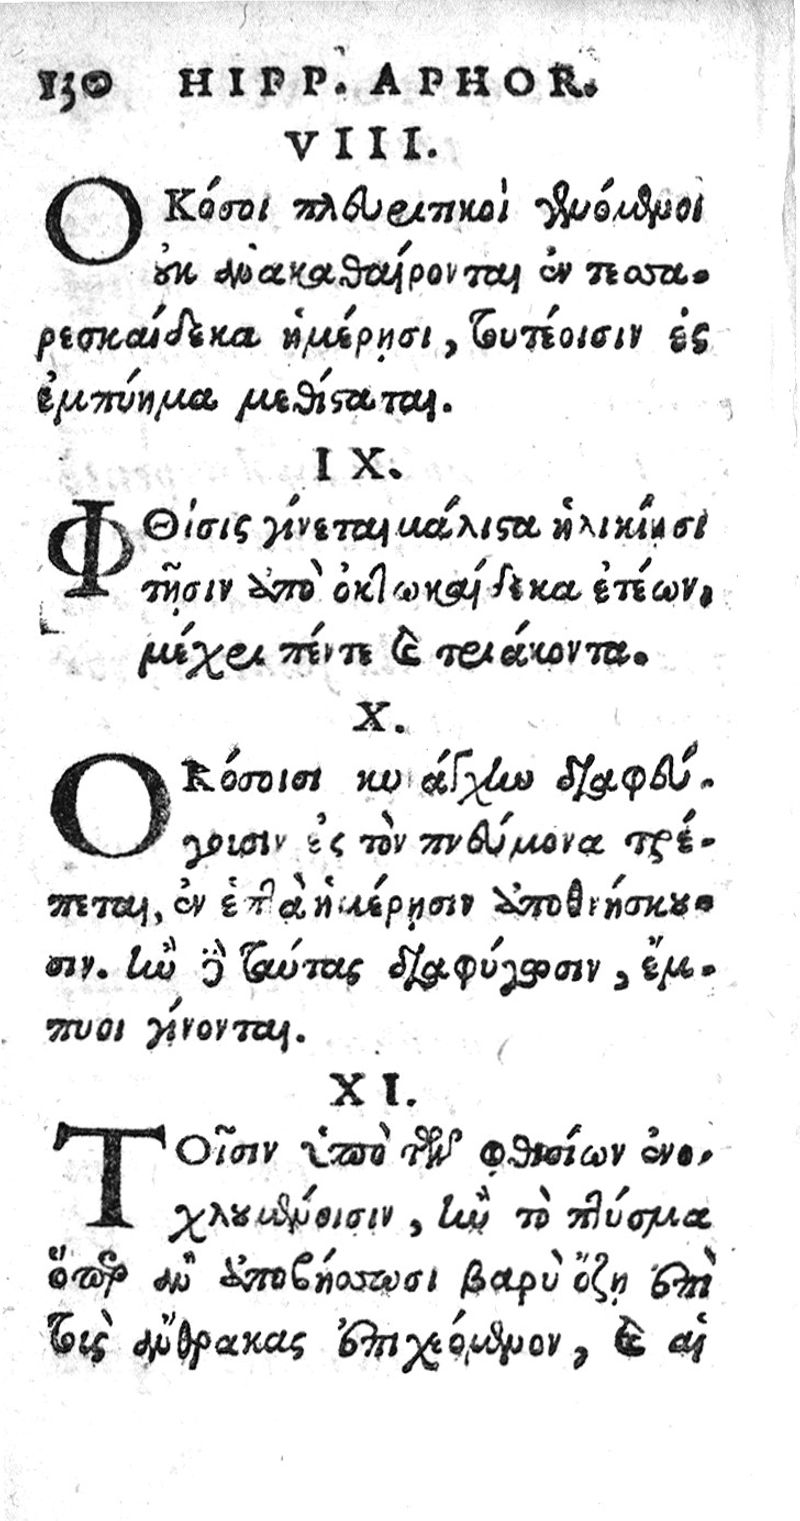 130 HIPP. APHOR.
VIII.
ΟΚόσοι πλευριτικοὶ γενόμενοι
οὐκ ἀνακαθαίρονται ἐν τεσσα-
ρεσκαίδεκα ἡμέρῃσι, τουτέοισιν ἐς
ἐμπύημα μεθίσταται.
IX.
ΦΘίσις γίνεται μάλιστα ἡλικίῃσι
τῇσιν ἀπὸ ὀκτωκαίδεκα ἐτέων,
μέχρι πέντε καὶ τριάκοντα.
X.
ΟΚόσοισι κυνάγχην διαφεύ-
γουσιν ἐς τὸν πνεύμονα τρέ-
πεται, ἐν ἑπτὰ ἡμέρῃσιν ἀποθνήσκου-
σιν. ἢν δὲ ταύτας διαφύγωσιν, ἔμ-
πυοι γίνονται.
XI.
ΤΟῖσιν ὑπὸ τῶν φθισίων ἐνο-
χλουμένοισιν, ἢν τὸ πτύσμα
ὅπερ ἂν ἀποβήσσωσι βαρὺ ὄζῃ ἐπὶ
τοὺς ἄνθρακας ἐπιχεόμενον, καὶ αἱ